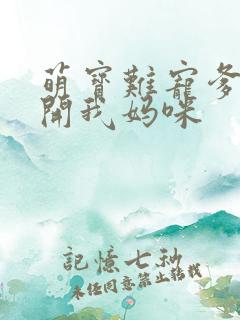 萌寶難寵爹
開我媽咪
記憶七秒
未經同意禁止轉載